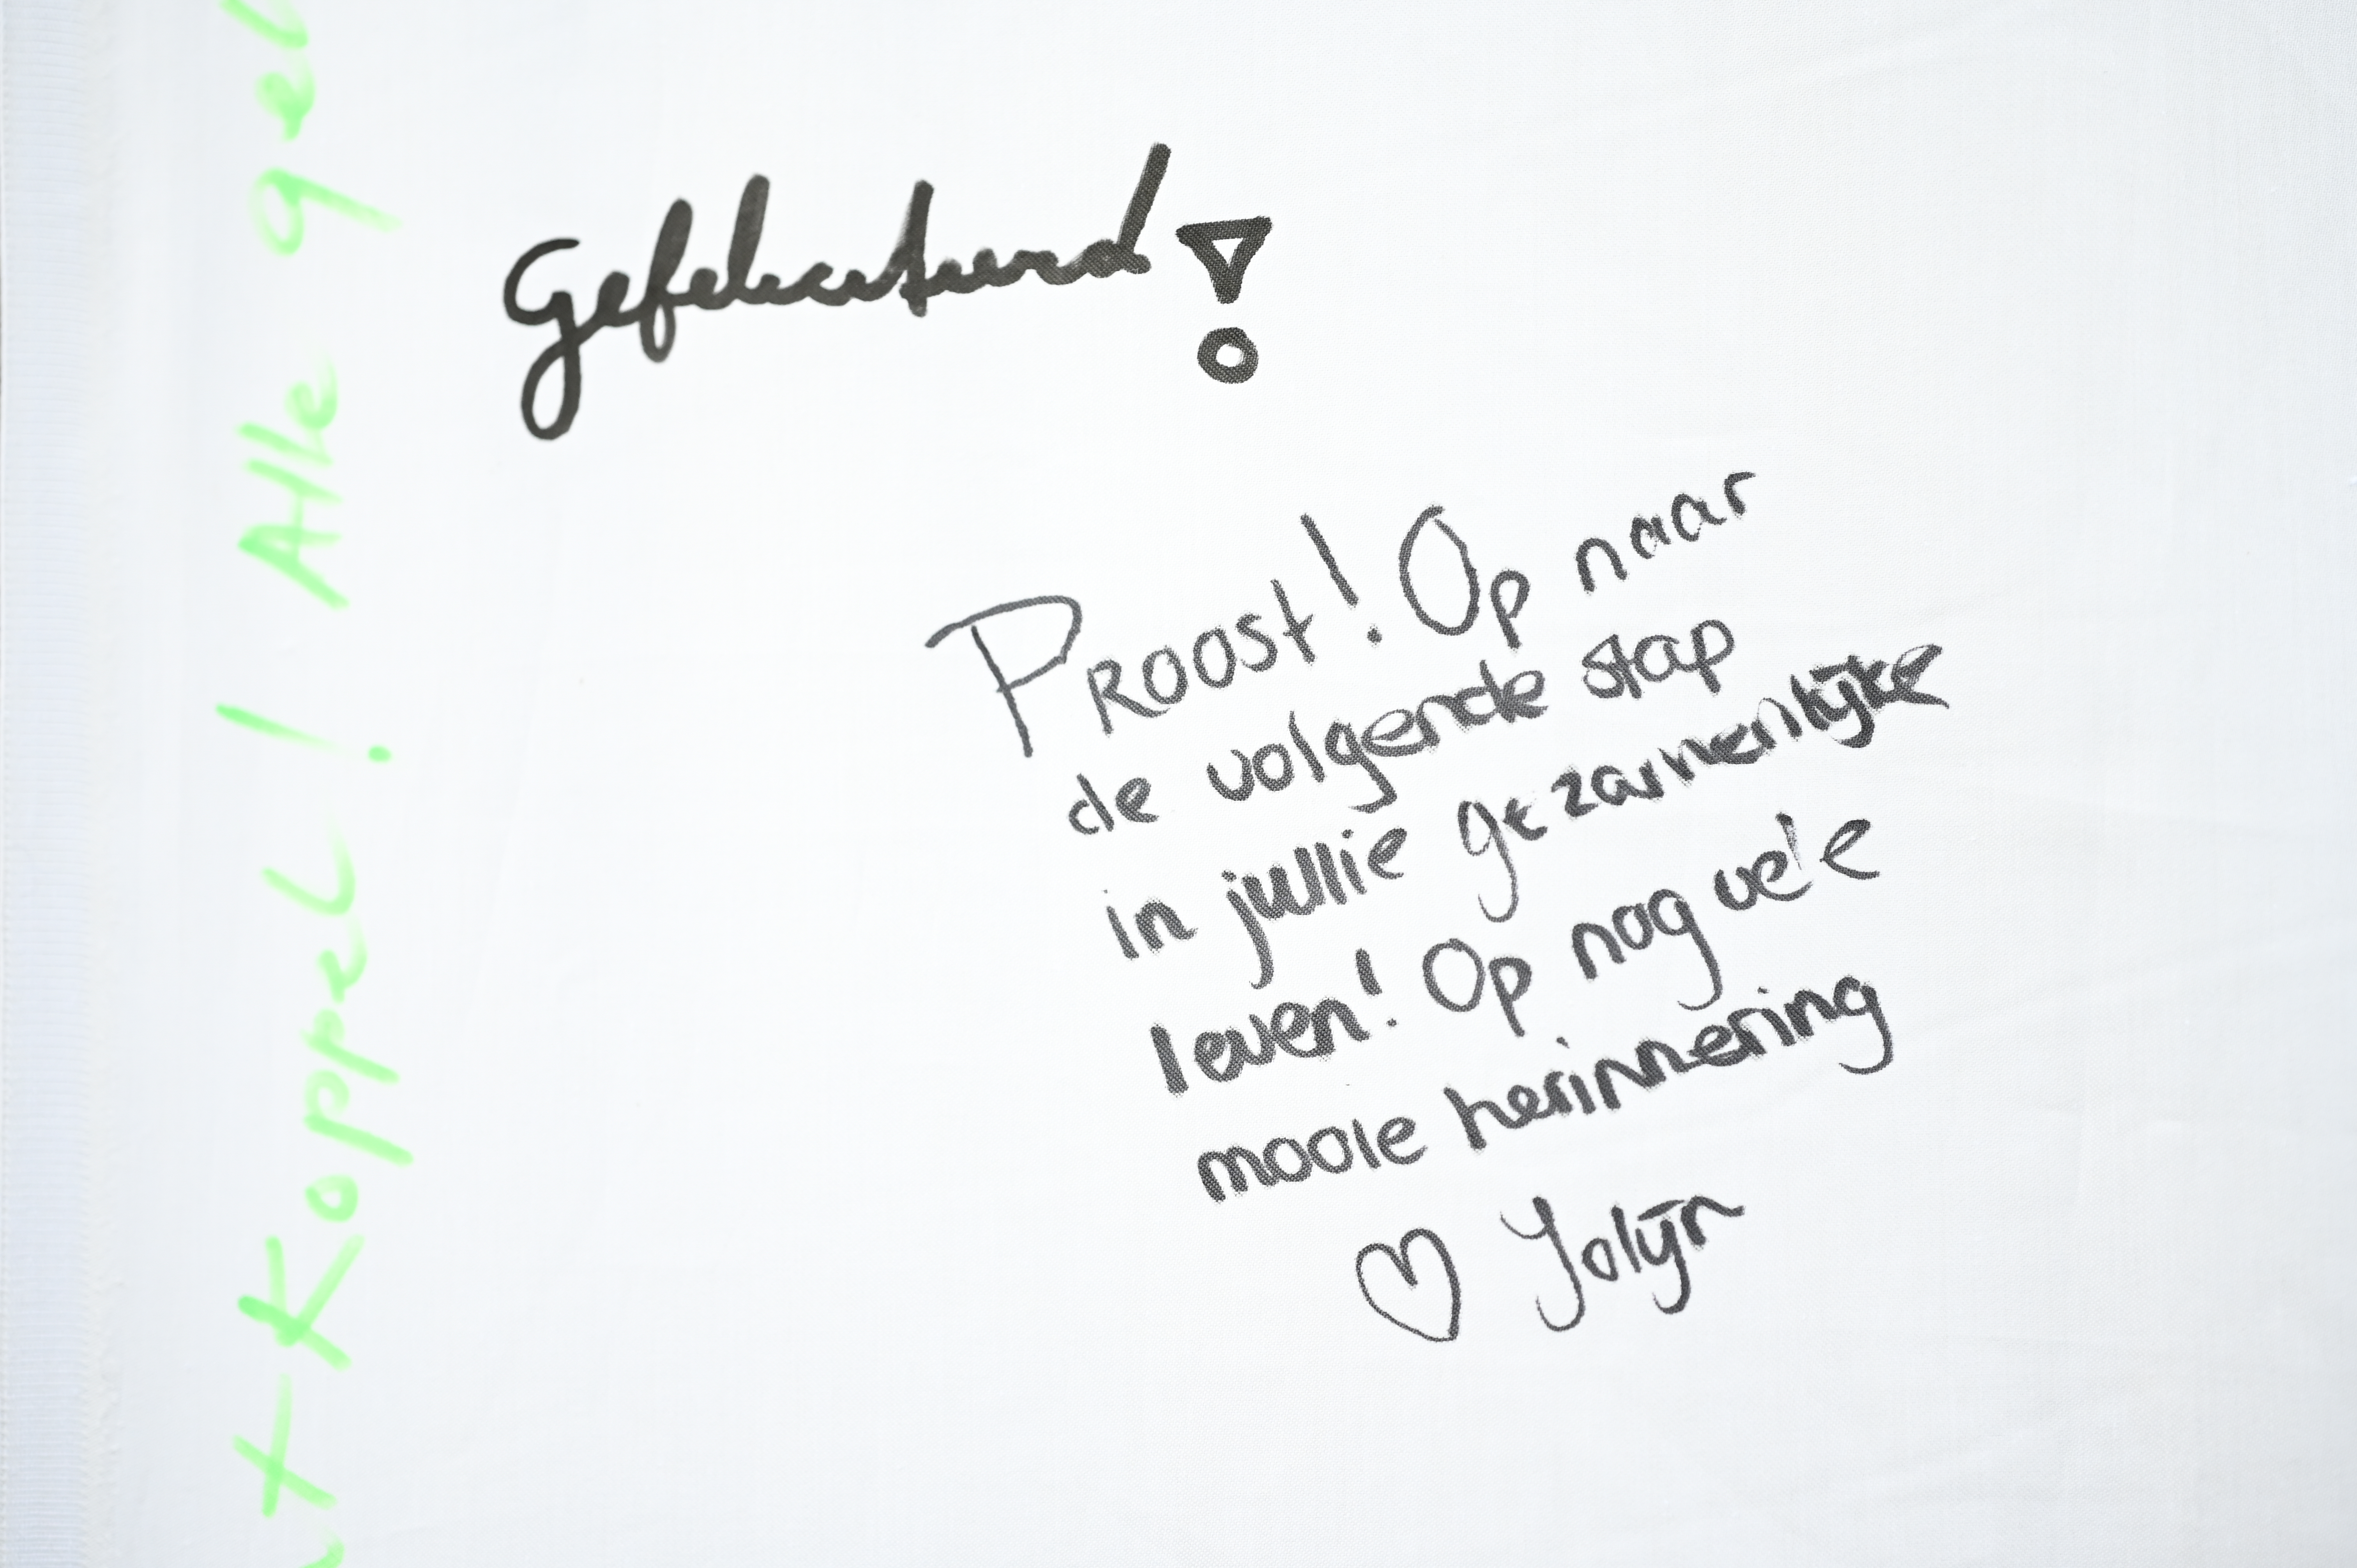 Gefeliciteerd!
Proost! Op naar
de volgende stap
in jullie gezamenlijke
leven! Op nog vele
mooie herinnering
♡ Jolijn
t Koppel! Alle gel